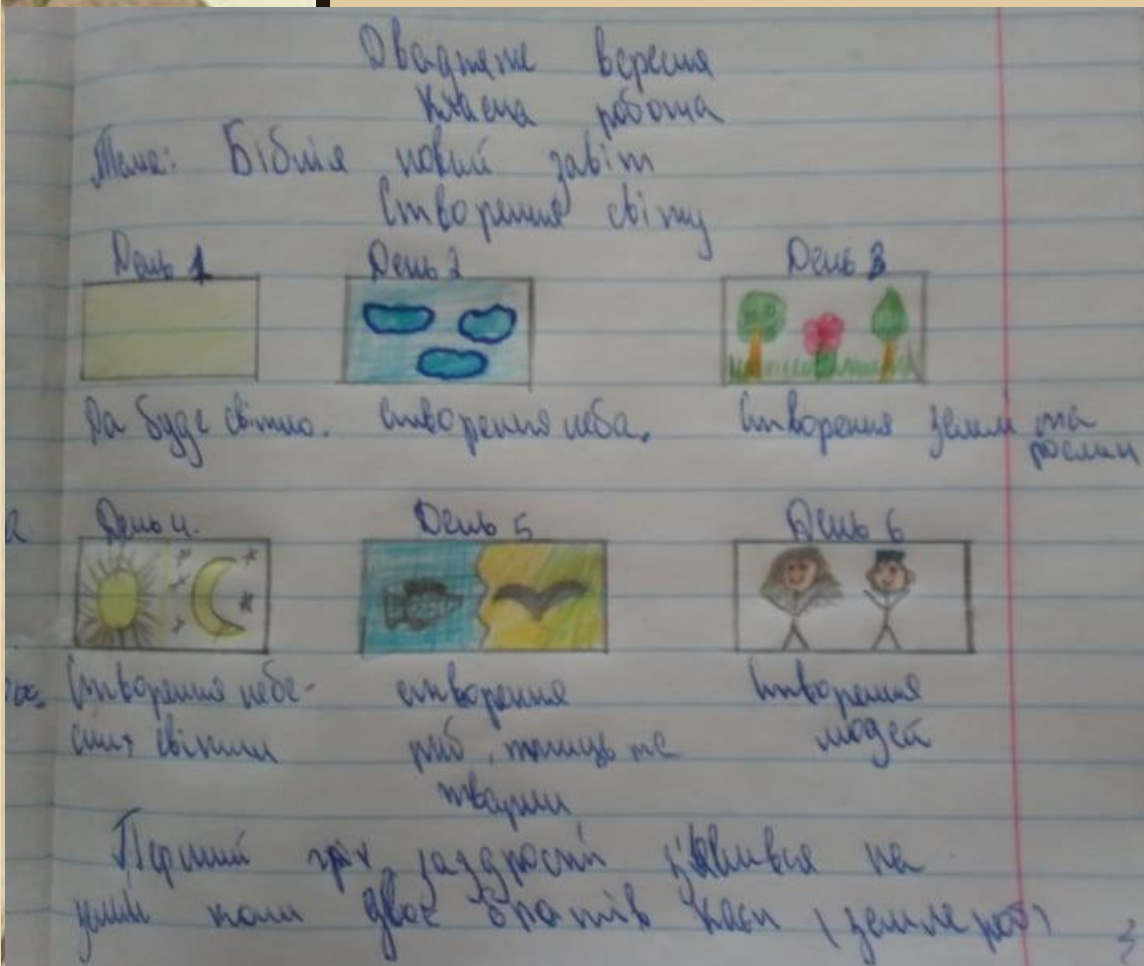 Двадцяте вересня
Класна робота
Тема: Біблія новий завіт
Створення світу
День 1 День 2 День 3
Да буде світло. створення неба. Створення землі та
рослин
День 4. День 5 День 6
Створення небе- створення Створення
сних світил риб, птиць та людей
тварин
Перший гріх заздрості з'явився на
землі коли двоє братів Каєн (землероб)